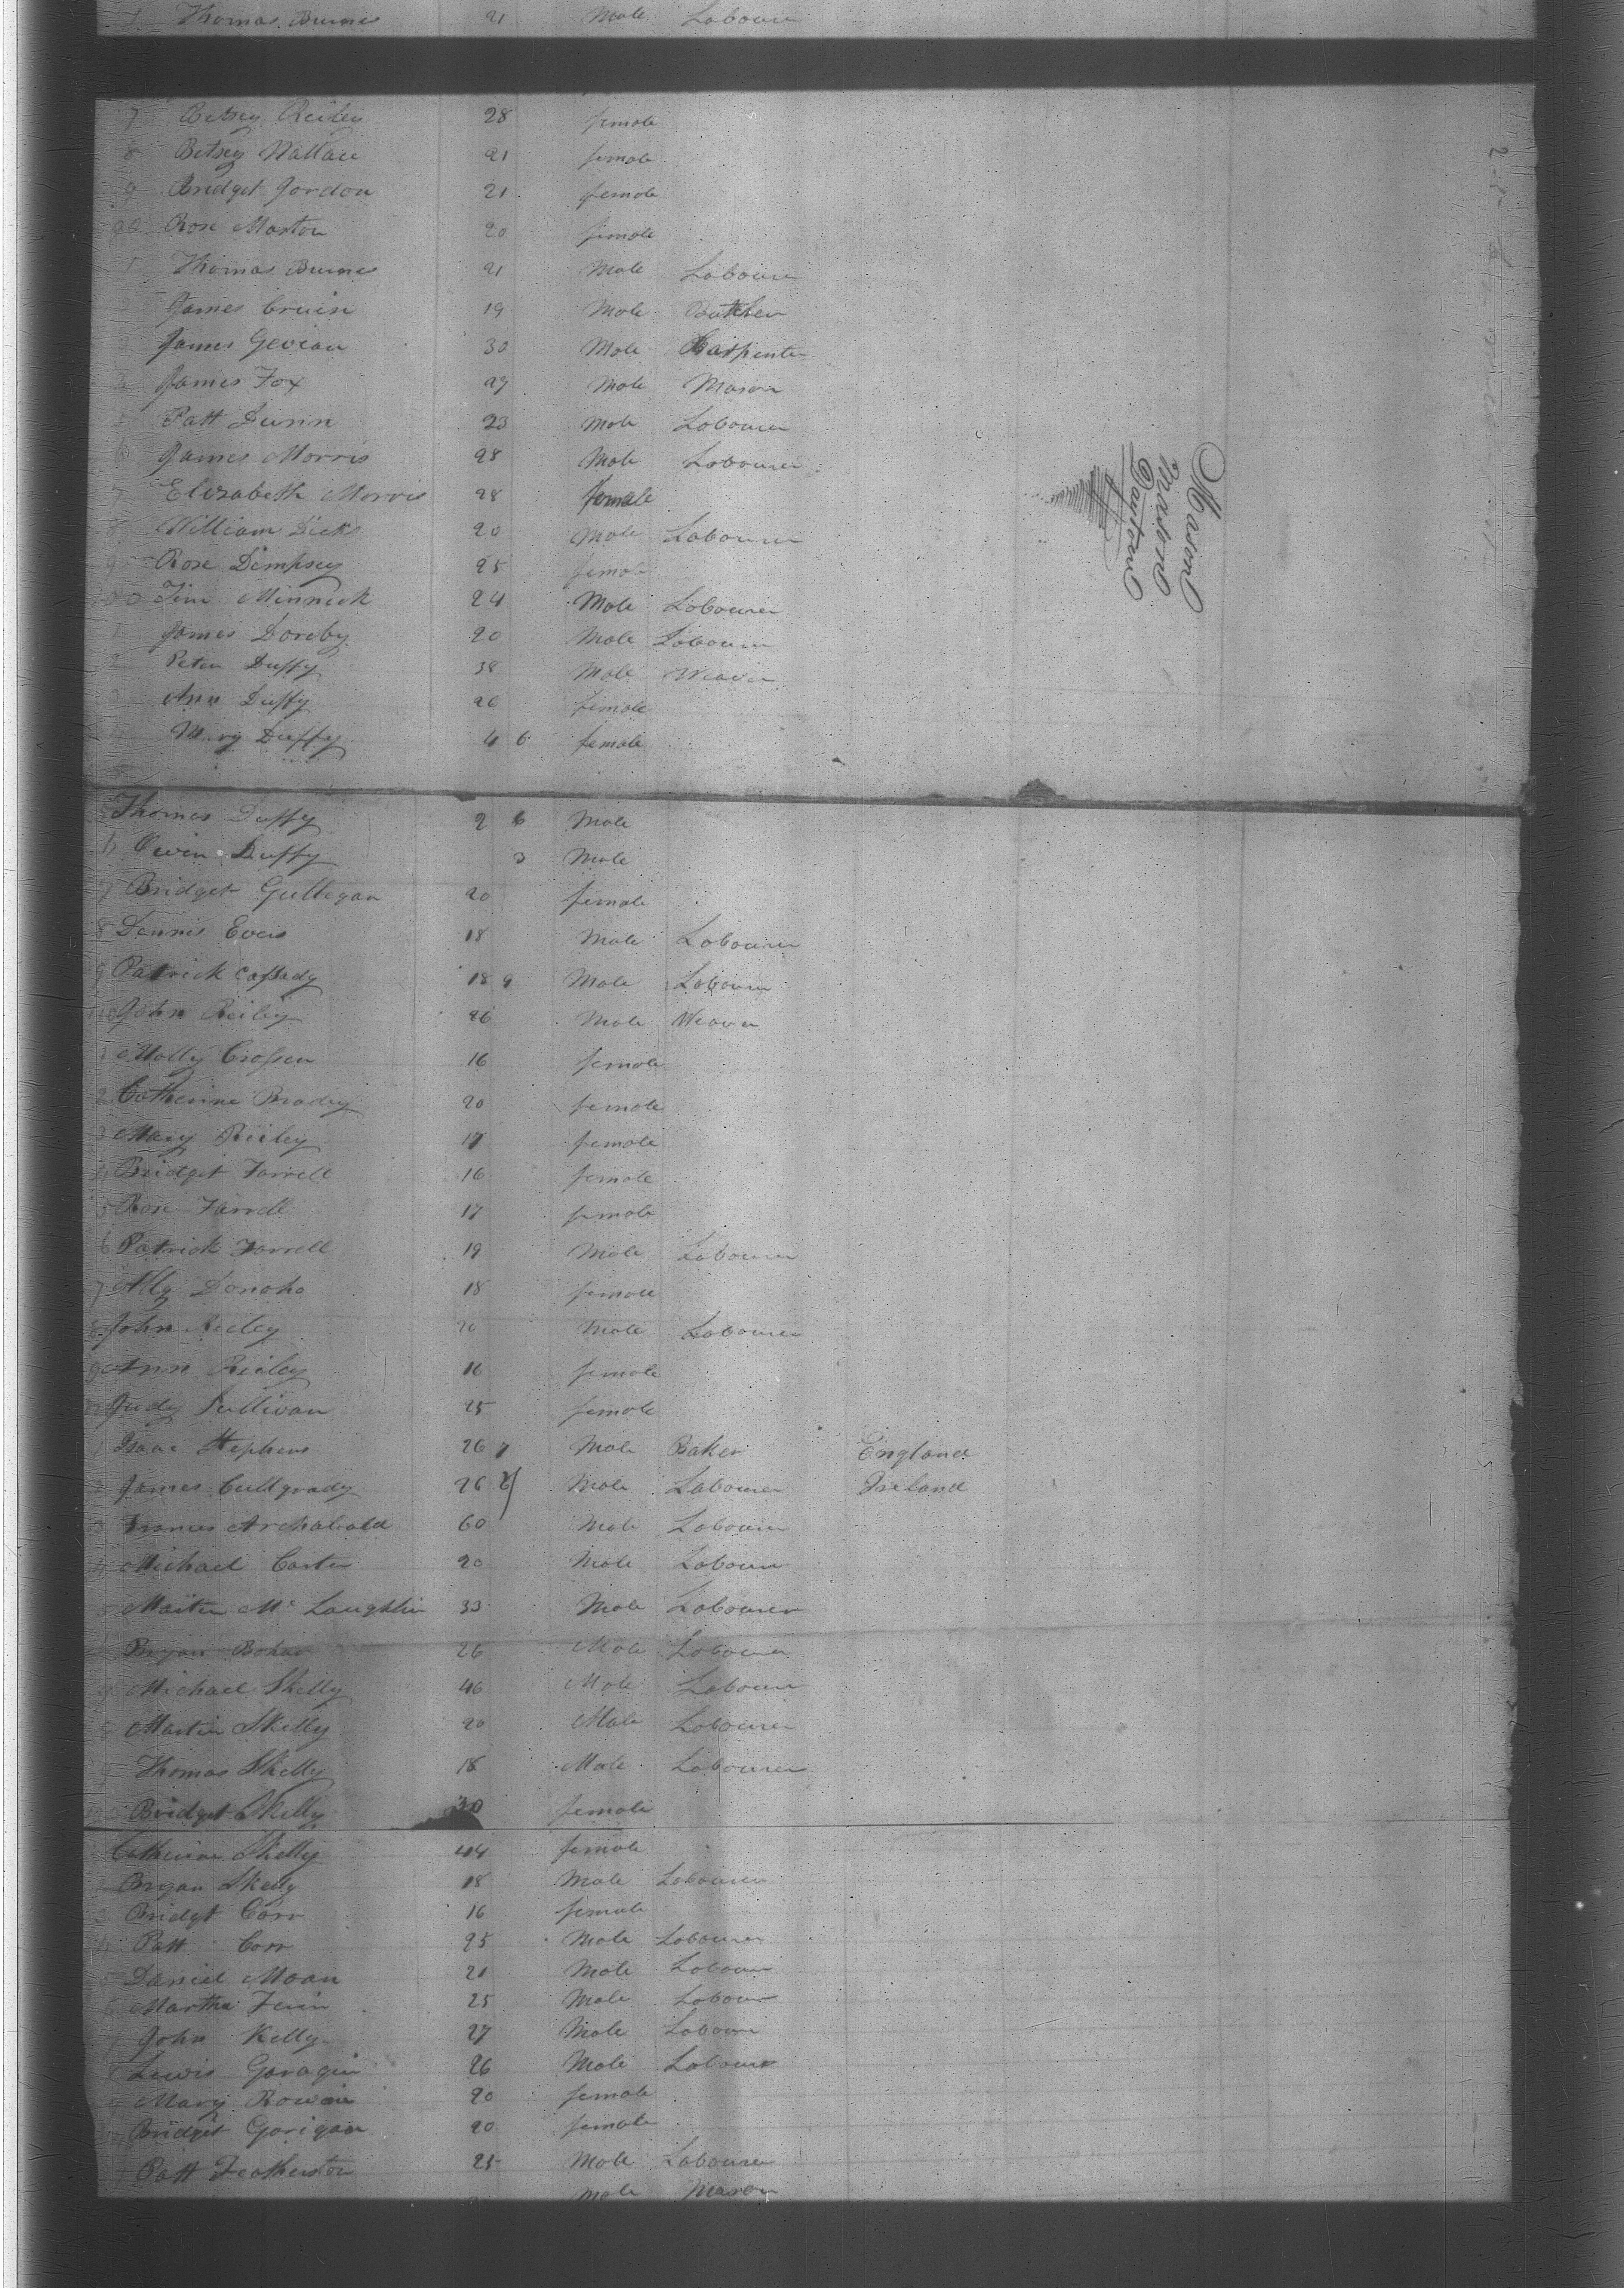 1 Thomas Burnes 21 Male Labourer
7 Betsey Reiley 28 female
8 Betsey Wallace 21 female
9 Bridget Jordon 21 female
90 Rose Marton 20 female
1 Thomas Burnes 21 Male Labourer
2 James Cruise 19 Male Butcher
3 James Gevean 30 Male Carpenter
4 James Fox 27 Male Mason
5 Patt Dunn 23 Male Labourer
6 James Morris 28 Male Labourer
7 Elizabeth Morris 28 female
8 William Dicks 20 Male Labourer
9 Rose Dempsey 25 female
100 Tim Minnick 24 Male Labourer
1 James Doreby 20 Male Labourer
2 Peter Duffy 38 Male Weaver
3 Ann Duffy 26 female
Mary Duffy 4 6 female
5 Thomas Duffy 2 6 Male
6 Owen Duffy 3 Male
7 Bridget Gullegan 20 female
8 Dennis Evers 18 Male Labourer
9 Patrick Cassady 18 9 Male Labourer
110 John Reiley 26 Male Weaver
1 Molly Crossen 16 female
2 Catherine Brady 20 female
3 Mary Reiley 17 female
4 Bridget Farrell 16 female
5 Rose Farrell 17 female
6 Patrick Farrell 19 Male Labourer
7 Ally Donoho 18 female
8 John Reiley 20 Male Labourer
9 Ann Reiley 16 female
Judy Sullivan 25 female
1 Isaac Stephens 26 Male Baker England
2 James Cullgrady 26 Male Labourer Ireland
3 Frances Archabald 60 Male Labourer
4 Michael Carter 20 Male Labourer
5 Martin Mc Laughlin 33 Male Labourer
Bryan Bohan 26 Male Labourer
7 Michael Skelly 46 Male Labourer
8 Martin Skelly 20 Male Labourer
9 Thomas Skelly 18 Male Labourer
Bridget Skelly 30 female
Catherine Skelly 44 female
2 Bryan Skelly 18 Male Labourer
3 Bridgt Corr 16 female
4 Patt Corr 25 Male Labourer
5 Daniel Moan 21 Male Labourer
6 Martha 25 Male Labour
7 John Kelly 27 Male Labourer
Lewis Goragin 26 Male Labourer
Mary Rowan 20 female
Bridget Gorigan 20 female
Patt Featherston 25 Male Labourer
Male Mason
Mason
Mason
Dayton